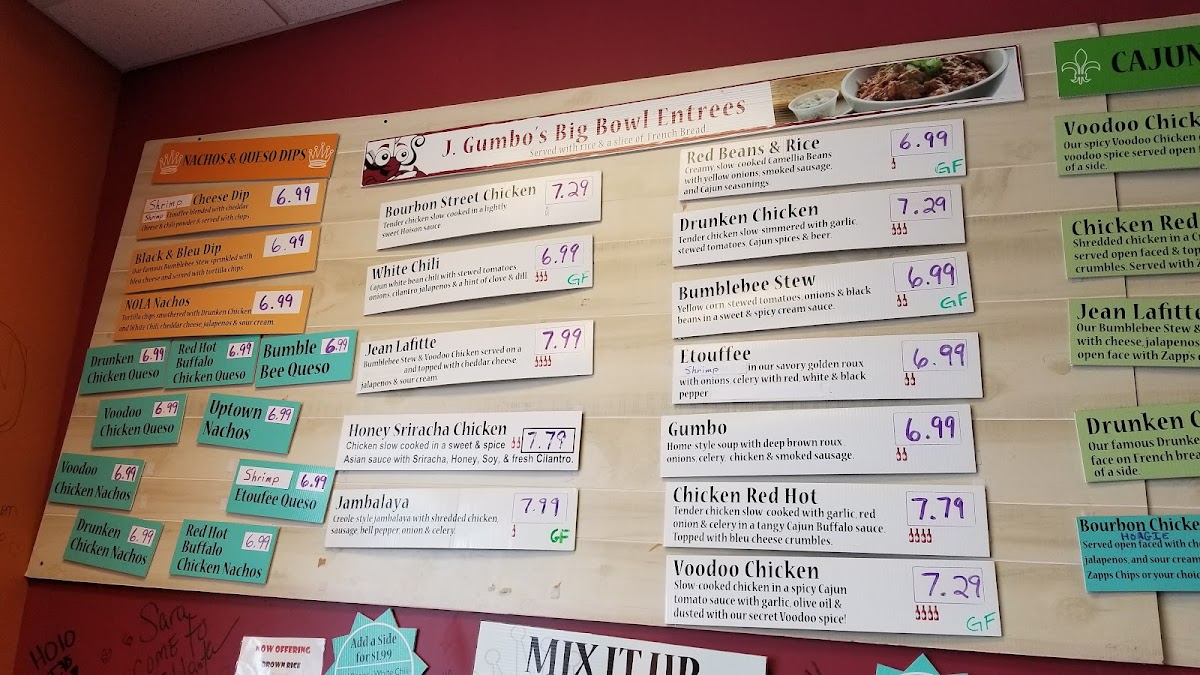 NACHOS & QUESO DIPS
Shrimp Cheese Dip 6.99
Shrimp Etouffee blended with cheddar
cheese & chili powder & served with chips.
Black & Bleu Dip 6.99
Our famous Bumblebee Stew sprinkled with
bleu cheese and served with tortilla chips.
NOLA Nachos 6.99
Tortilla chips smothered with Drunken Chicken
and White Chili, cheddar cheese, jalapenos & sour cream.
Drunken 6.99
Chicken Queso
Red Hot 6.99
Buffalo
Chicken Queso
Bumble 6.99
Bee Queso
Voodoo 6.99
Chicken Queso
Uptown 6.99
Nachos
Voodoo 6.99
Chicken Nachos
Shrimp 6.99
Etoufee Queso
Drunken 6.99
Chicken Nachos
Red Hot 6.99
Buffalo
Chicken Nachos
J. Gumbo's Big Bowl Entrees
Served with rice & a slice of French Bread
Bourbon Street Chicken 7.29
Tender chicken slow cooked in a lightly
sweet Hoison sauce
White Chili 6.99
Cajun white bean chili with stewed tomatoes,
onions, cilantro, jalapenos & a hint of clove & dill.
GF
Jean Lafitte 7.99
Bumblebee Stew & Voodoo Chicken served on a
and topped with cheddar cheese
jalapenos & sour cream.
Honey Sriracha Chicken 7.79
Chicken slow cooked in a sweet & spice
Asian sauce with Sriracha, Honey, Soy, & fresh Cilantro.
Jambalaya 7.99
Creole-style jambalaya with shredded chicken,
sausage, bell pepper, onion & celery.
GF
Red Beans & Rice 6.99
Creamy slow-cooked Camellia Beans
with yellow onions, smoked sausage,
and Cajun seasonings.
GF
Drunken Chicken 7.29
Tender chicken slow-simmered with garlic,
stewed tomatoes, Cajun spices & beer.
Bumblebee Stew 6.99
Yellow corn, stewed tomatoes, onions & black
beans in a sweet & spicy cream sauce.
GF
Etouffee 6.99
Shrimp in our savory golden roux
with onions, celery with red, white & black
pepper
Gumbo 6.99
Home-style soup with deep brown roux,
onions, celery, chicken & smoked sausage.
Chicken Red Hot 7.79
Tender chicken slow cooked with garlic, red
onion & celery in a tangy Cajun Buffalo sauce.
Topped with bleu cheese crumbles.
Voodoo Chicken 7.29
Slow-cooked chicken in a spicy Cajun
tomato sauce with garlic, olive oil &
dusted with our secret Voodoo spice!
GF
CAJUN
Voodoo Chick
Our spicy Voodoo Chicken
voodoo spice served open f
of a side.
Chicken Red
Shredded chicken in a C
served open faced & top
crumbles. Served with Z
Jean Lafitte
Our Bumblebee Stew &
with cheese, jalapenos,
open face with Zapps c
Drunken C
Our famous Drunke
face on French bread
of a side.
Bourbon Chicke
HOAGIE
Served open faced with che
jalapenos, and sour cream
Zapps Chips or your choic
Sara
COME TO
NOW OFFERING
BROWN RICE
Add a Side
for $1.99
MIX IT UP